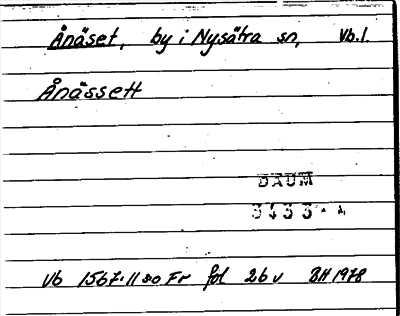 Ånäset, by i Nysätra sn, Vb.l.
Ånässett
DAUM
Vb 1567:11 80 Fr fol 26 v BH 1978